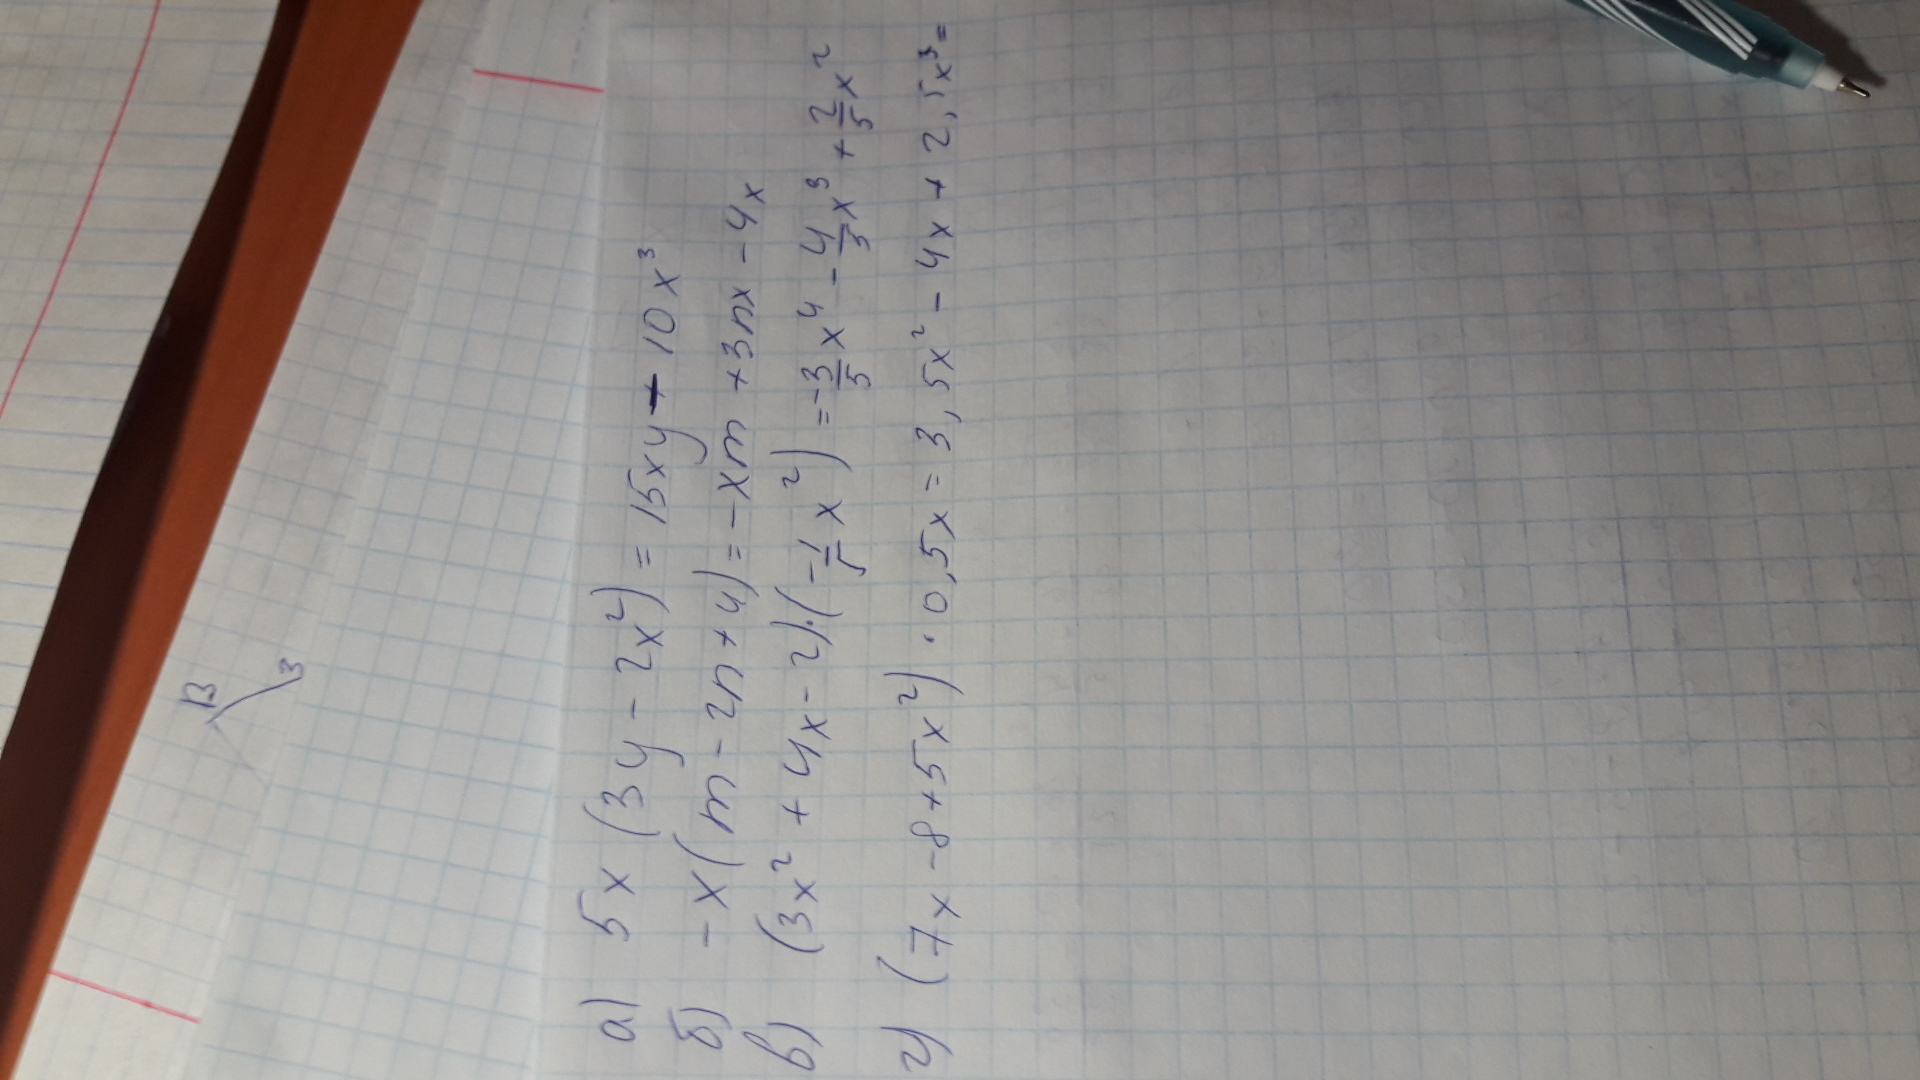 В
3
а) 5x (3y - 2x²) = 15xy - 10x³
б) -x(m - 2n + 4) = -xm + 3nx - 4x
в) (3x² + 4x - 2)·(-1/5x²) = -3/5x⁴ - 4/3x³ + 2/5x²
г) (7x - 8 + 5x²) · 0,5x = 3,5x² - 4x + 2,5x³ =